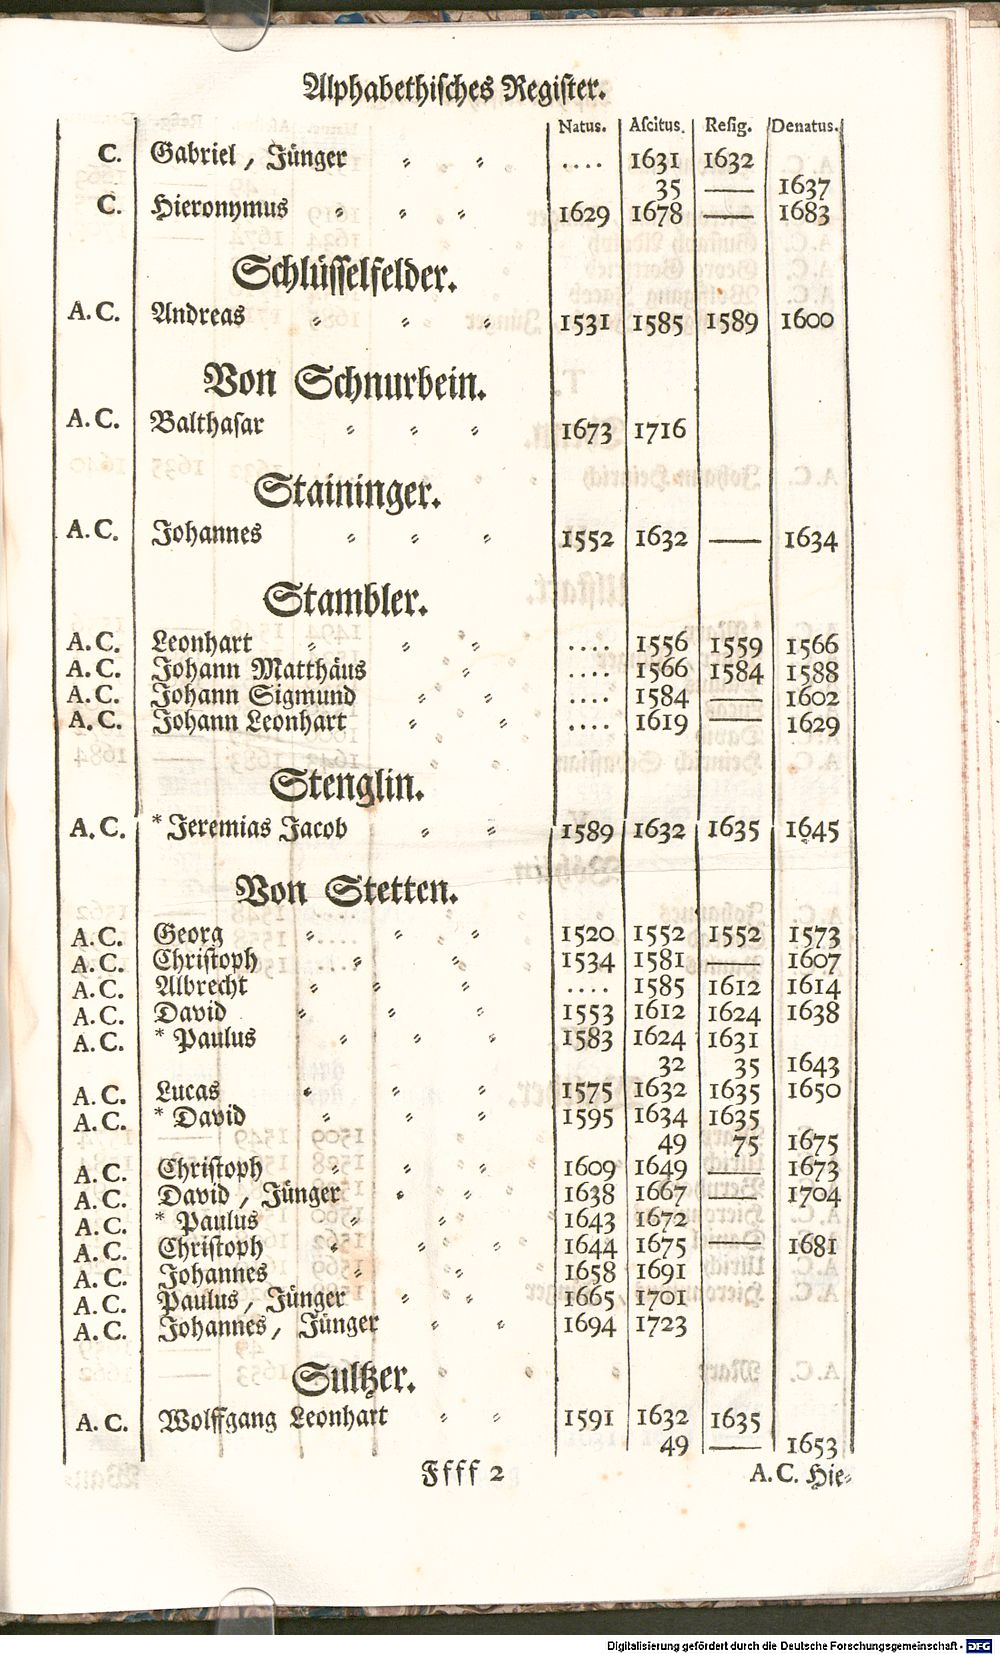 Alphabethisches Register.
Natus. Aſcitus. Reſig. Denatus.
C. Gabriel, Jünger .... 1631 1632
35 —— 1637
C. Hieronymus 1629 1678 —— 1683
Schlüſſelfelder.
A. C. Andreas 1531 1585 1589 1600
Von Schnurbein.
A. C. Balthaſar 1673 1716
Staininger.
A. C. Johannes 1552 1632 —— 1634
Stambler.
A. C. Leonhart .... 1556 1559 1566
A. C. Johann Matthäus .... 1566 1584 1588
A. C. Johann Sigmund .... 1584 —— 1602
A. C. Johann Leonhart .... 1619 —— 1629
Stenglin.
A. C. * Jeremias Jacob 1589 1632 1635 1645
Von Stetten.
A. C. Georg 1520 1552 1552 1573
A. C. Chriſtoph 1534 1581 —— 1607
A. C. Albrecht .... 1585 1612 1614
A. C. David 1553 1612 1624 1638
A. C. * Paulus 1583 1624 1631
32 35 1643
A. C. Lucas 1575 1632 1635 1650
A. C. * David 1595 1634 1635
49 75 1675
A. C. Chriſtoph 1609 1649 —— 1673
A. C. David, Jünger 1638 1667 —— 1704
A. C. * Paulus 1643 1672
A. C. Chriſtoph 1644 1675 —— 1681
A. C. Johannes 1658 1691
A. C. Paulus, Jünger 1665 1701
A. C. Johannes, Jünger 1694 1723
Sultzer.
A. C. Wolffgang Leonhart 1591 1632 1635
49 —— 1653
Ffff 2 A. C. Hie⸗
Digitalisierung gefördert durch die Deutsche Forschungsgemeinschaft - DFG